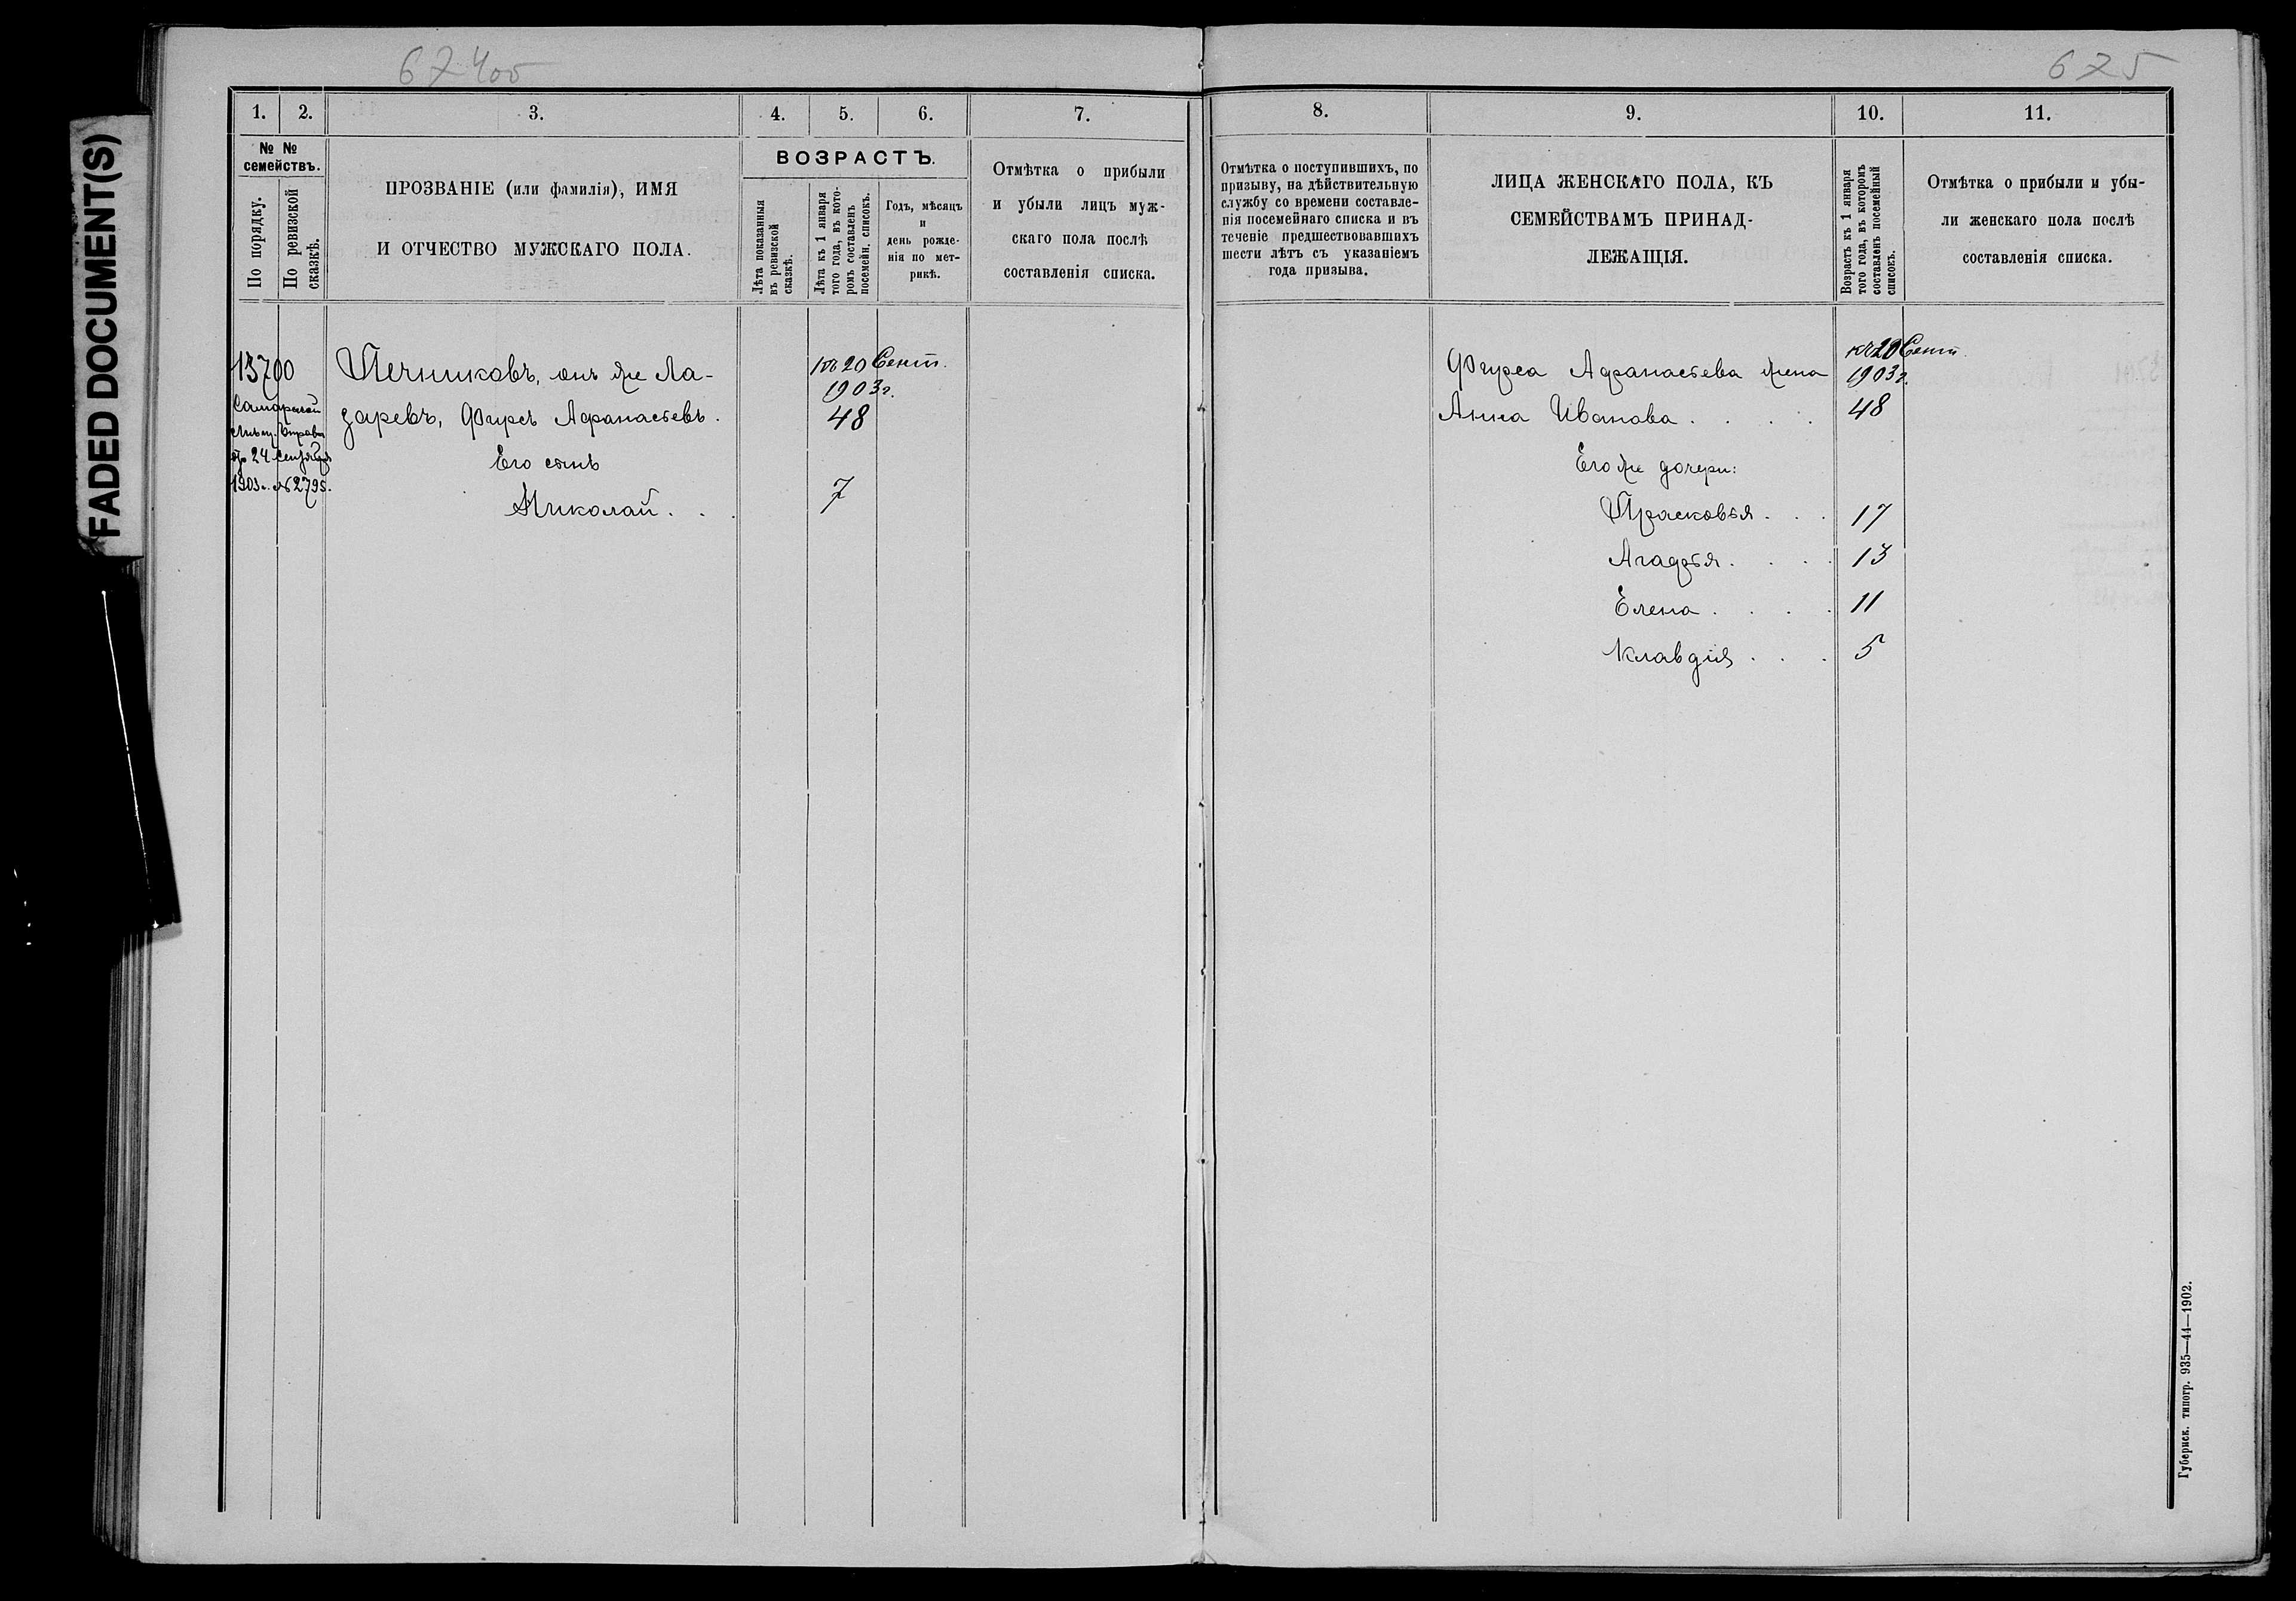 FADED DOCUMENT(S)
67400
1. 2. 3. 4. 5. 6. 7.
№ №
семействъ.
По порядку.
По ревизской
сказкѣ.
ПРОЗВАНІЕ (или фамилія), ИМЯ
И ОТЧЕСТВО МУЖСКАГО ПОЛА.
ВОЗРАСТЪ.
Лѣта показанныя
въ ревизской
сказкѣ.
Лѣта къ 1 января
того года, въ кото-
ромъ составленъ
посемейн. списокъ.
Годъ, мѣсяцъ
и
день рожде-
нія по мет-
рикѣ.
Отмѣтка о прибыли
и убыли лицъ муж-
скаго пола послѣ
составленія списка.
13700
Самарской
мѣщ. Управы
отъ 24 сентября
1903 г. № 2795.
Печниковъ, онъ же Ла-
заревъ, Фирсъ Афанасьевъ.
къ 20 Сент.
1903 г.
48
Его сынъ
Николай . . 7
675
8. 9. 10. 11.
Отмѣтка о поступившихъ, по
призыву, на дѣйствительную
службу со времени составле-
нія посемейнаго списка и въ
теченіе предшествовавшихъ
шести лѣтъ съ указаніемъ
года призыва.
ЛИЦА ЖЕНСКАГО ПОЛА, КЪ
СЕМЕЙСТВАМЪ ПРИНАД-
ЛЕЖАЩІЯ.
Возрастъ къ 1 января
того года, въ которомъ
составленъ посемейный
списокъ.
Отмѣтка о прибыли и убы-
ли женскаго пола послѣ
составленія списка.
къ 20 Сент.
1903 г.
Фирса Афанасьева жена
Анна Иванова . . . . 48
Его же дочери:
Прасковья . . . 17
Агафья . . . . 13
Елена . . . . 11
Клавдія . . . 5
Губернск. типогр. 935—44—1902.